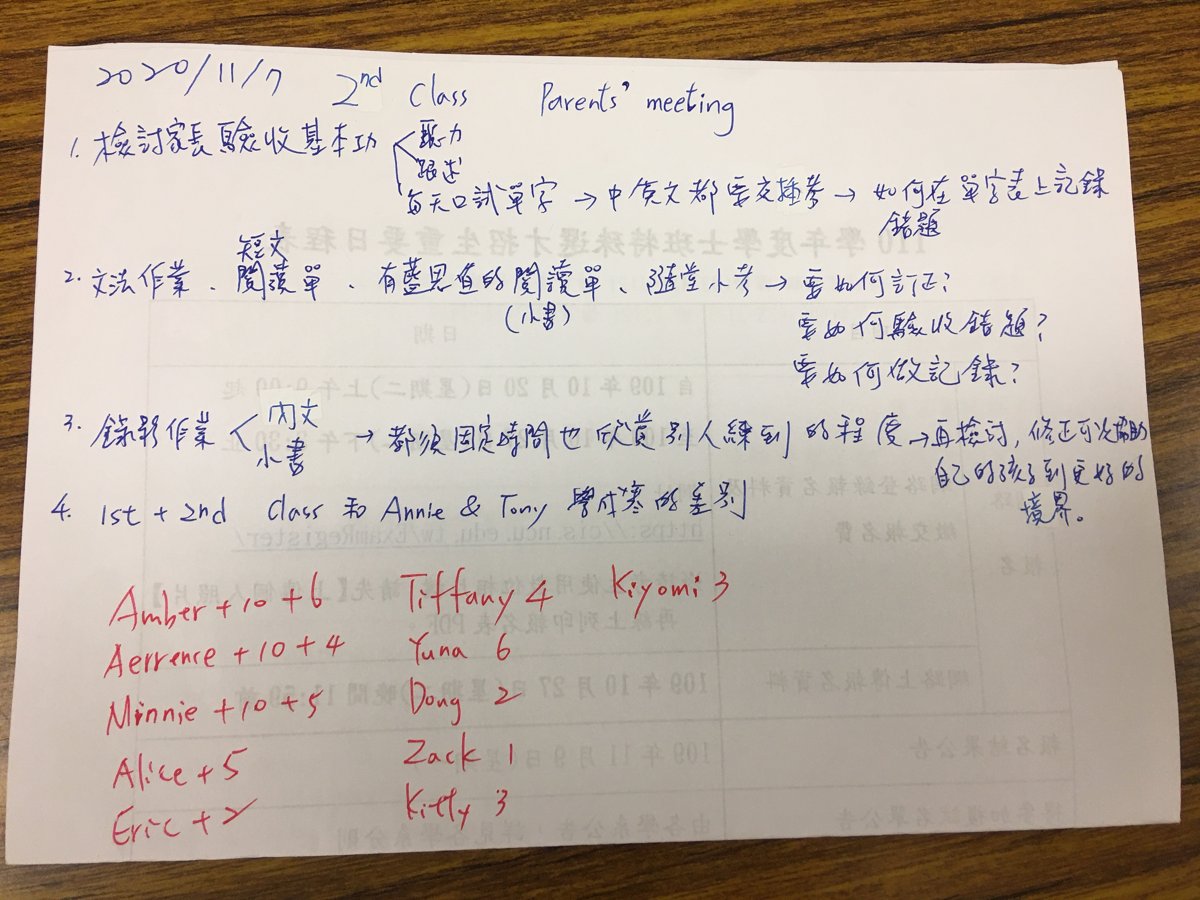 2020/11/7 2nd Class Parents' meeting
1. 檢討家長驗收基本功
聽力
跟述
每天口試單字 → 中英文都要交插考 → 如何在單字表上記錄
錯題
短文
2. 文法作業、閱讀單、有藍思值的閱讀單、隨堂小考 → 要如何訂正?
(小書)
要如何驗收錯題?
要如何做記錄?
3. 錄影作業
內文
小書
→ 都須固定時間也欣賞別人練到的程度 → 再檢討, 修正可以協助
自己的孩子到更好的
境界。
4. 1st + 2nd Class 和 Annie & Tony 學成寒的差別
Amber + 10 + 6 Tiffany 4 Kiyomi 3
Aerrence + 10 + 4 Yuna 6
Minnie + 10 + 5 Dong 2
Alice + 5 Zack 1
Eric + 2 Kitty 3